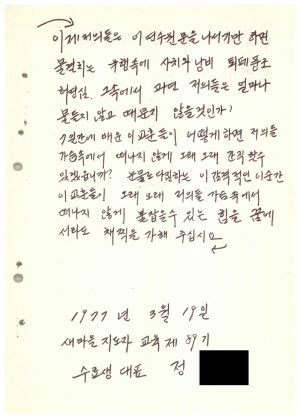 이제 저희들은 이 연수원 문을 나서기만 하면
물결치는 유행속에 사치와 낭비 퇴폐풍조
허영심. 그속에서 과연 저희들은 얼마나
물들지 않고 때묻지 않을것인가!
7일간에 배운 이교훈들이 어떻게하면 저희들
가슴속에서 떠나지 않게 오래 오래 간직 할수
있겠습니까? 눈물로 다짐하는 이 감격적인 이순간
이교훈들이 오래 오래 저희들 가슴속에서
떠나지 않게 붙잡을수 있는 힘을 꿈에
서라도 채찍을 가해 주십시요
1977년 3월 19일
새마을 지도자 교육 제 89기
수료생 대표 정